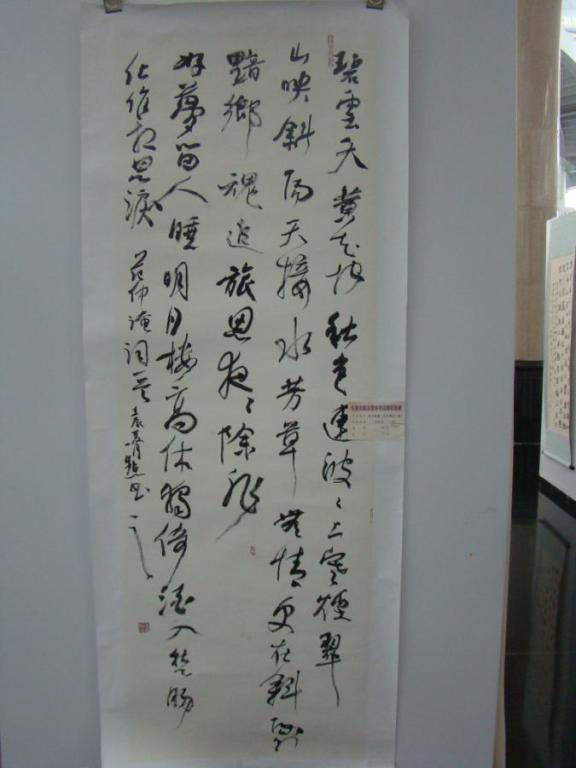 碧雲天黄花地秋色連波〻上寒煙翠
山映斜陽天接水芳草無情更在斜陽外
黯鄉魂追旅思夜〻除非
好夢留人睡明月樓高休獨倚酒入愁腸
化作相思淚 范仲淹詞一首